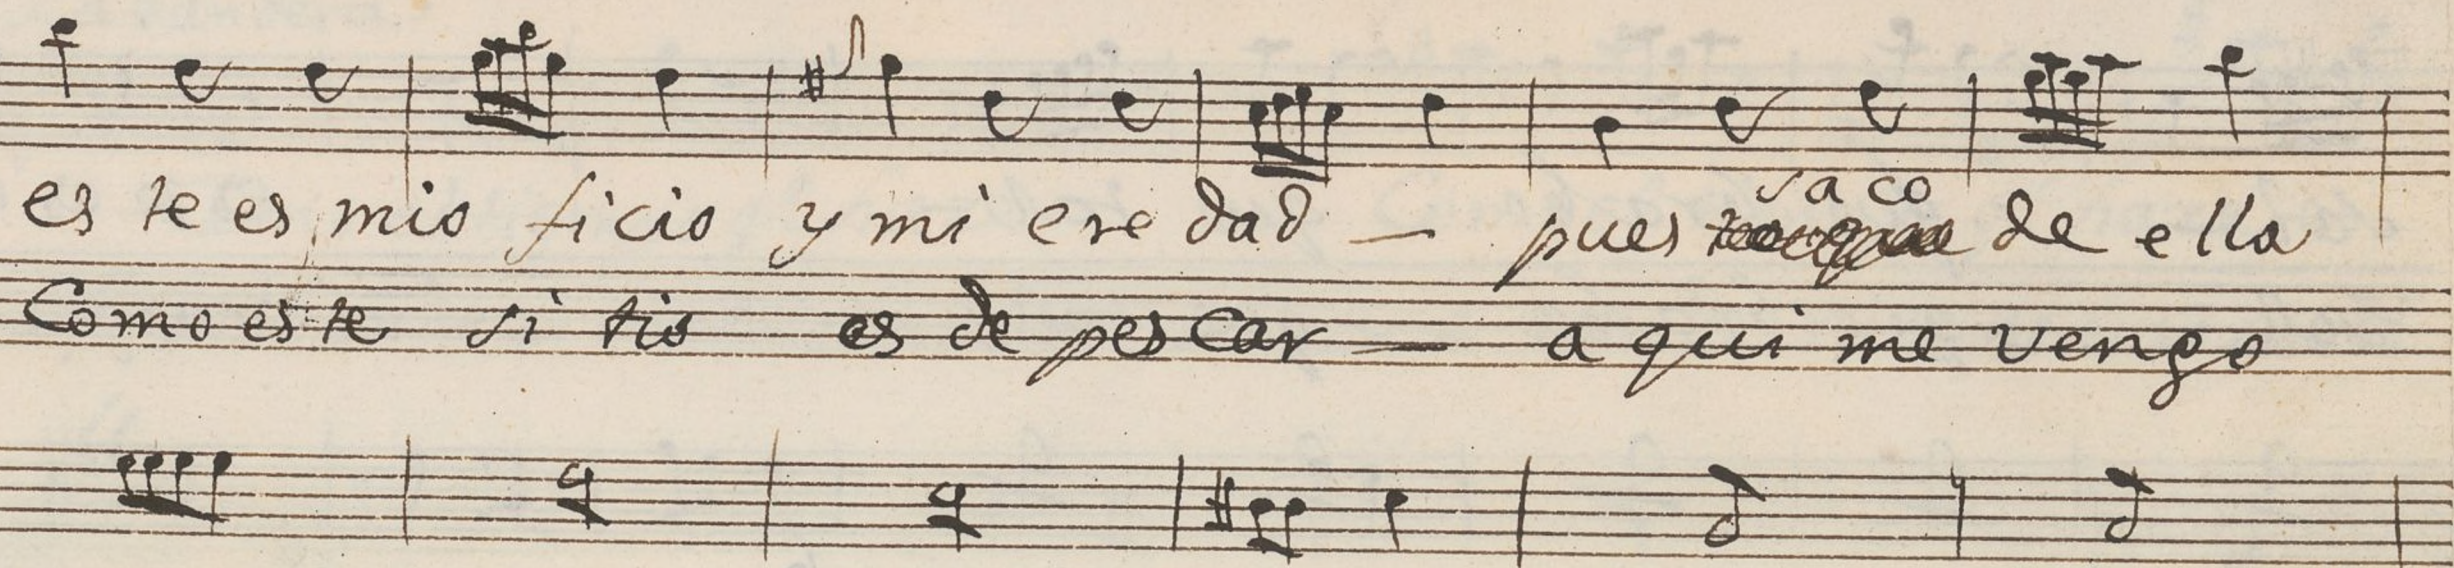 sa co
es te es mio ficio y mi ere dad — pues de ella
Como es te si tio es de pes car — a qui me vengo